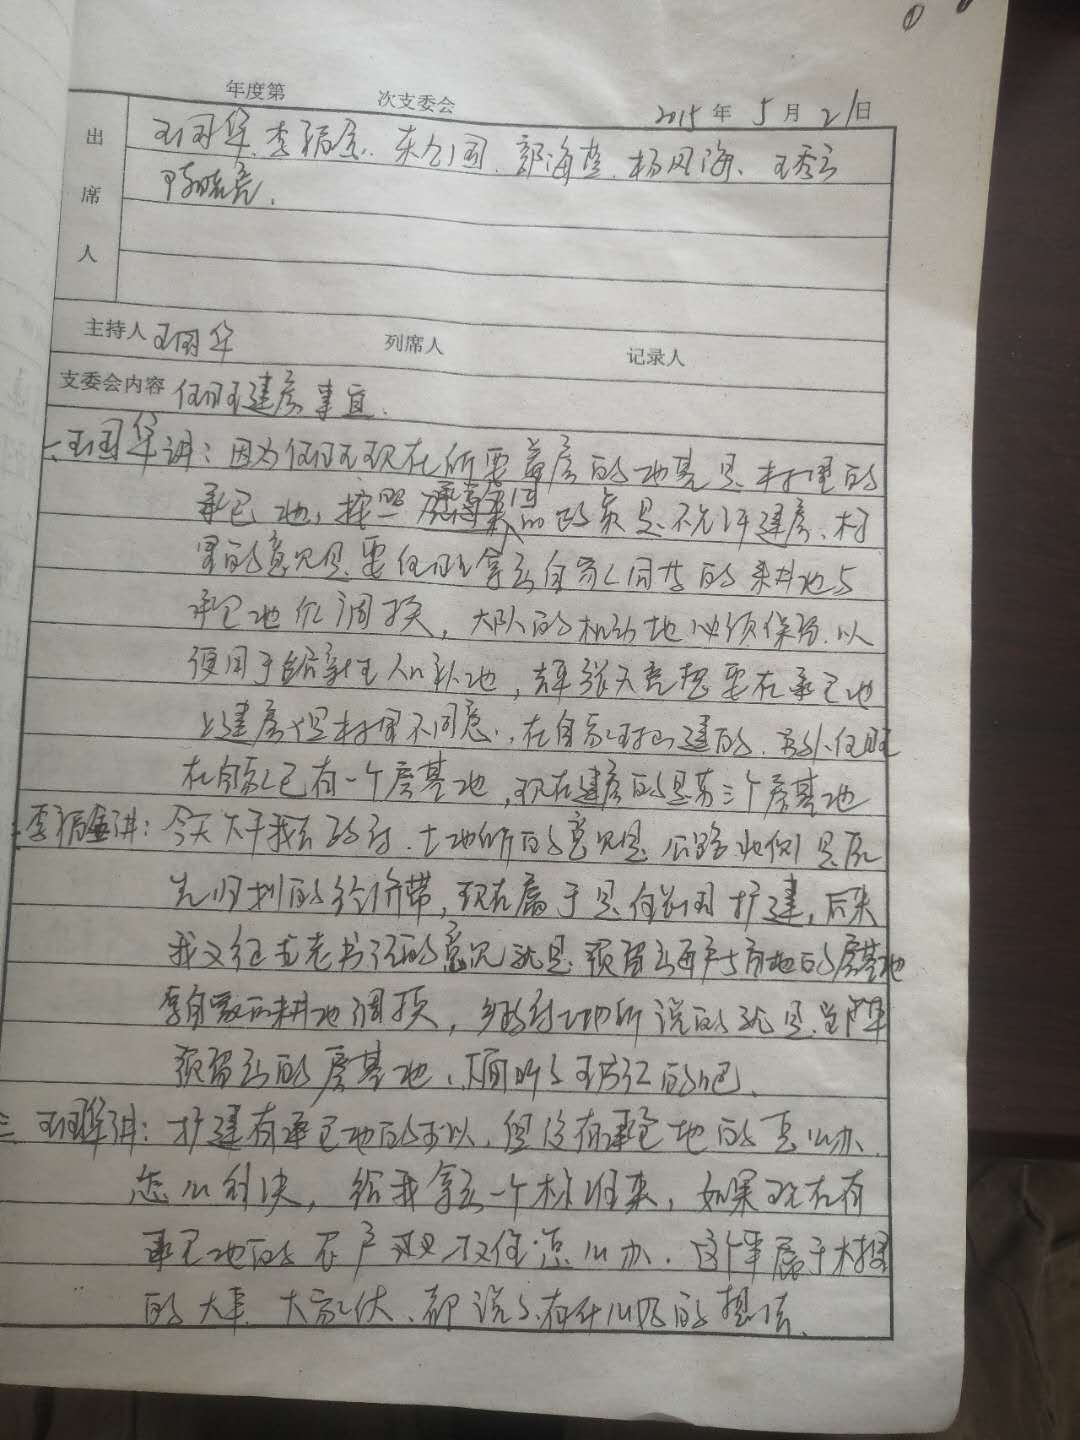 年度第 次支委会 2015年5月21日
出席人 王国华、李福 、 国、郭海 、杨风海、王秀云
陈晓亮、
主持人 王国华 列席人 记录人
支委会内容 任旺建房事宜.
一、王国华讲:因为任旺现在所要盖房的地基是村里的
承包地,按照 的政策是不允许建房、村
里的意见是要任旺拿出自家同等的耕地与
承包地作调换,大队的机动地必须保留.以
便用于给新生人口补地,去年张天亮想要在承包地
上建房但村里不同意,在自家 建的.另外任旺
在自家已有一个房基地,现在建房的是第三个房基地
二、李福 讲:今天下午我去政府.土地所的意见是公路北侧是原
先规划的经济带,现在属于是 扩建,后来
我又征求老书记的意见就是预留出 的房基地
拿自家的耕地调换,乡政府土地所说的就是当年
预留出的房基地、 听 的吧、
三、王国华讲:扩建有承包地的可以,但没有承包地的怎么办、
怎么解决,给我拿出一个标准来,如果现在有
承包地的农户 怎么办.这个事属于村里
的大事.大家伙、都说说有什么好的想法.